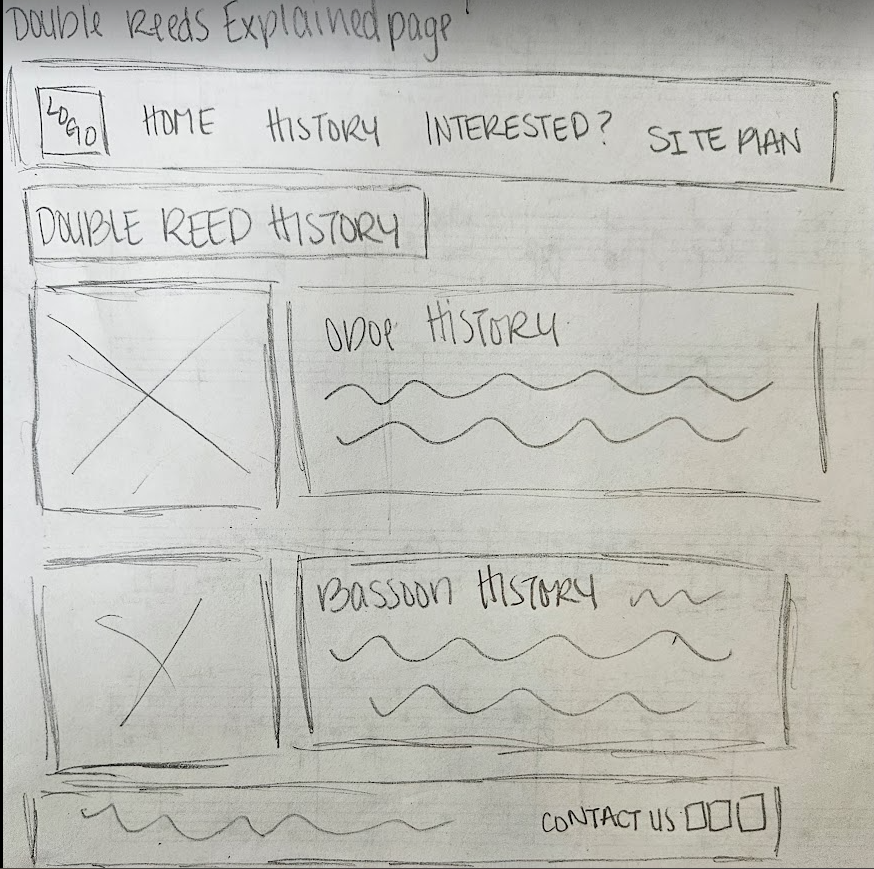 Double Reeds Explained page
LOGO HOME HISTORY INTERESTED? SITE PLAN
DOUBLE REED HISTORY
OBOE HISTORY
BASSOON HISTORY
CONTACT US